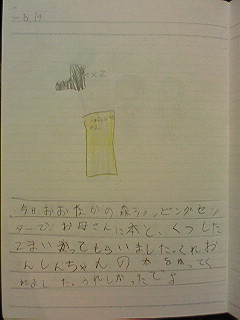 ×2
今日おおたかの森ショッピングセン
ターで、お母さんに本と、くつした
2まいかってもらいました。くれお
んしんちゃんの本をかってく
れました。うれしかったでよ